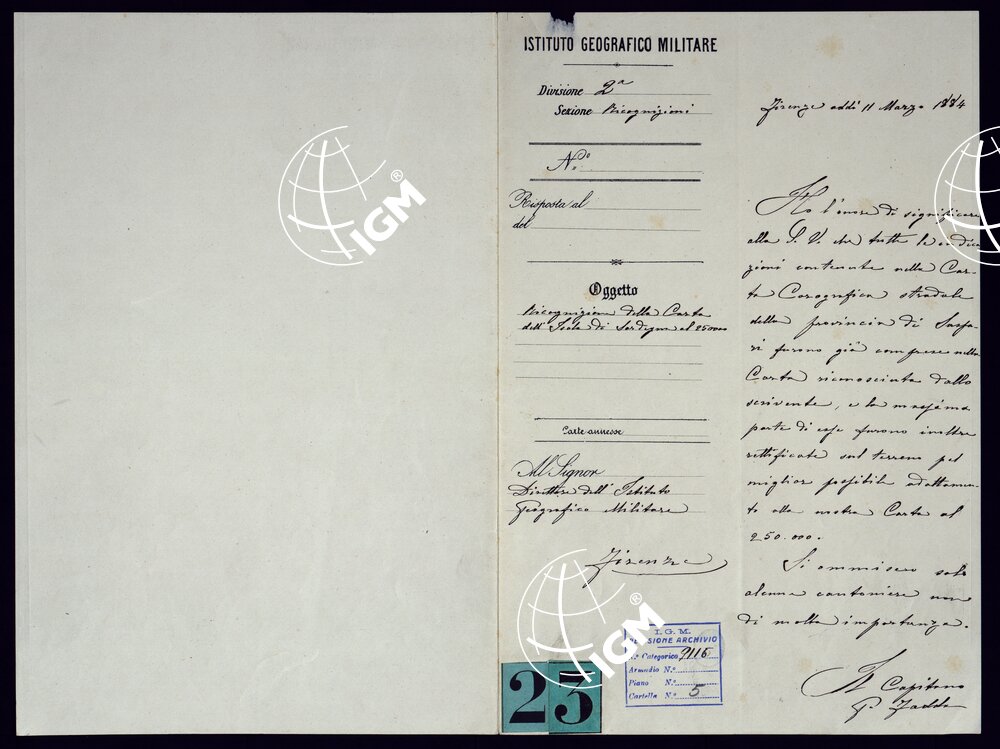 ISTITUTO GEOGRAFICO MILITARE
Divisione 2ª
Sezione Ricognizioni
N.º
Risposta al
del
Oggetto
Ricognizione della Carta
dell'Isola di Sardegna al 250000
Carte annesse
Al Signor
Direttore dell'Istituto
Geografico Militare
Firenze
Firenze addì 11 Marzo 1884
Ho l'onore di significare
alla S. V. che tutte le indica
zioni contenute nella Car-
ta Corografica stradale
della provincia di Sassa
ri furono già comprese nella
Carta riconosciuta dallo
scrivente, e la massima
parte di esse furono inoltre
rettificate sul terreno pel
miglior possibile adattamen-
to alla nostra Carta al
250.000.
Si ommisero solo
alcune cantoniere non
di molta importanza.
Il Capitano
I.G.M.
SEZIONE ARCHIVIO
N.º Categorico 9116
Armadio N.º
Piano N.º
Cartella N.º 5
23
IGM®
IGM®